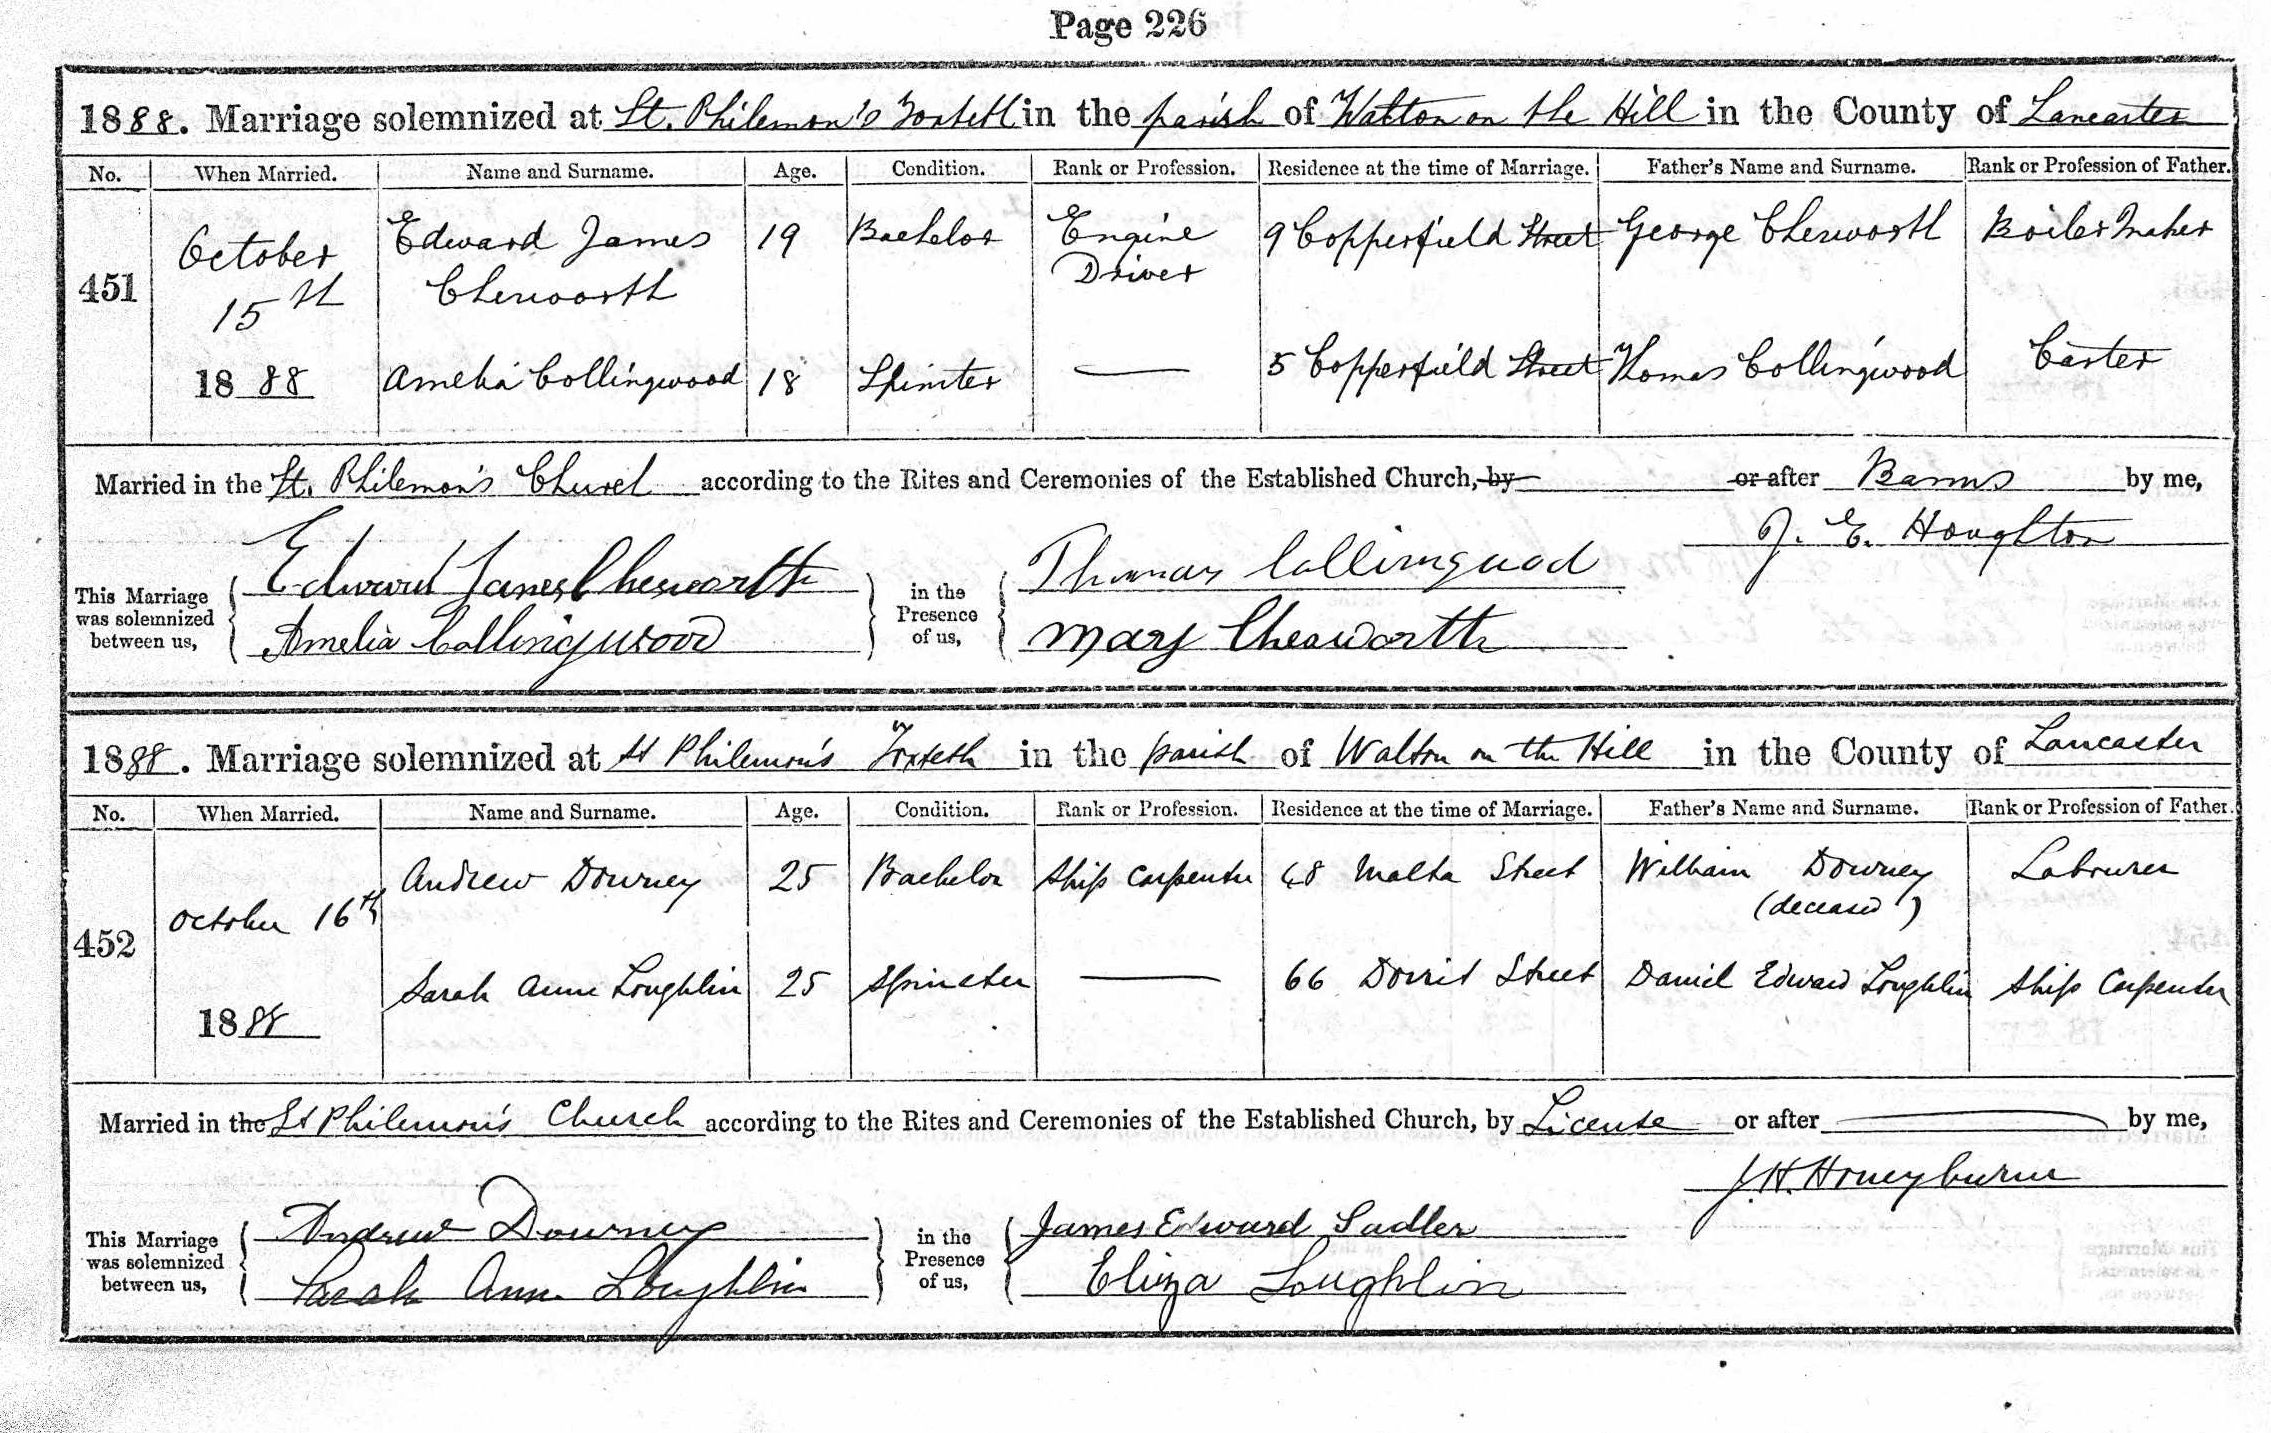 Page 226
1888. Marriage solemnized at St. Philemon's Toxteth in the parish of Walton on the Hill in the County of Lancaster
No. When Married. Name and Surname. Age. Condition. Rank or Profession. Residence at the time of Marriage. Father's Name and Surname. Rank or Profession of Father.
451 October 15th 1888 Edward James Chesworth 19 Bachelor Engine Driver 9 Copperfield Street George Chesworth Boiler Maker
Amelia Collingwood 18 Spinster — 5 Copperfield Street Thomas Collingwood Carter
Married in the St. Philemon's Church according to the Rites and Ceremonies of the Established Church, by or after Banns by me,
J. E. Houghton
This Marriage was solemnized between us, Edward James Chesworth Amelia Collingwood in the Presence of us, Thomas Collingwood Mary Chesworth
1888. Marriage solemnized at St Philemon's Toxteth in the parish of Walton on the Hill in the County of Lancaster
No. When Married. Name and Surname. Age. Condition. Rank or Profession. Residence at the time of Marriage. Father's Name and Surname. Rank or Profession of Father.
452 October 16th 1888 Andrew Downey 25 Bachelor Ship Carpenter 48 Malta Street William Downey (deceased) Labourer
Sarah Anne Loughlin 25 Spinster — 66 Dorrit Street Daniel Edward Loughlin Ship Carpenter
Married in the St Philemon's Church according to the Rites and Ceremonies of the Established Church, by License or after — by me,
J. H. Honeyburne
This Marriage was solemnized between us, Andrew Downey Sarah Ann Loughlin in the Presence of us, James Edward Sadler Eliza Loughlin